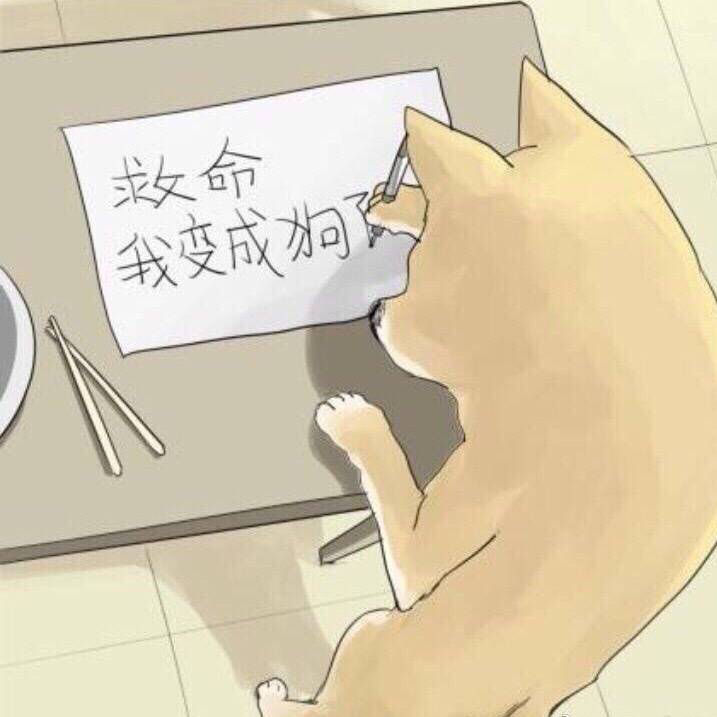 救命
我变成狗了